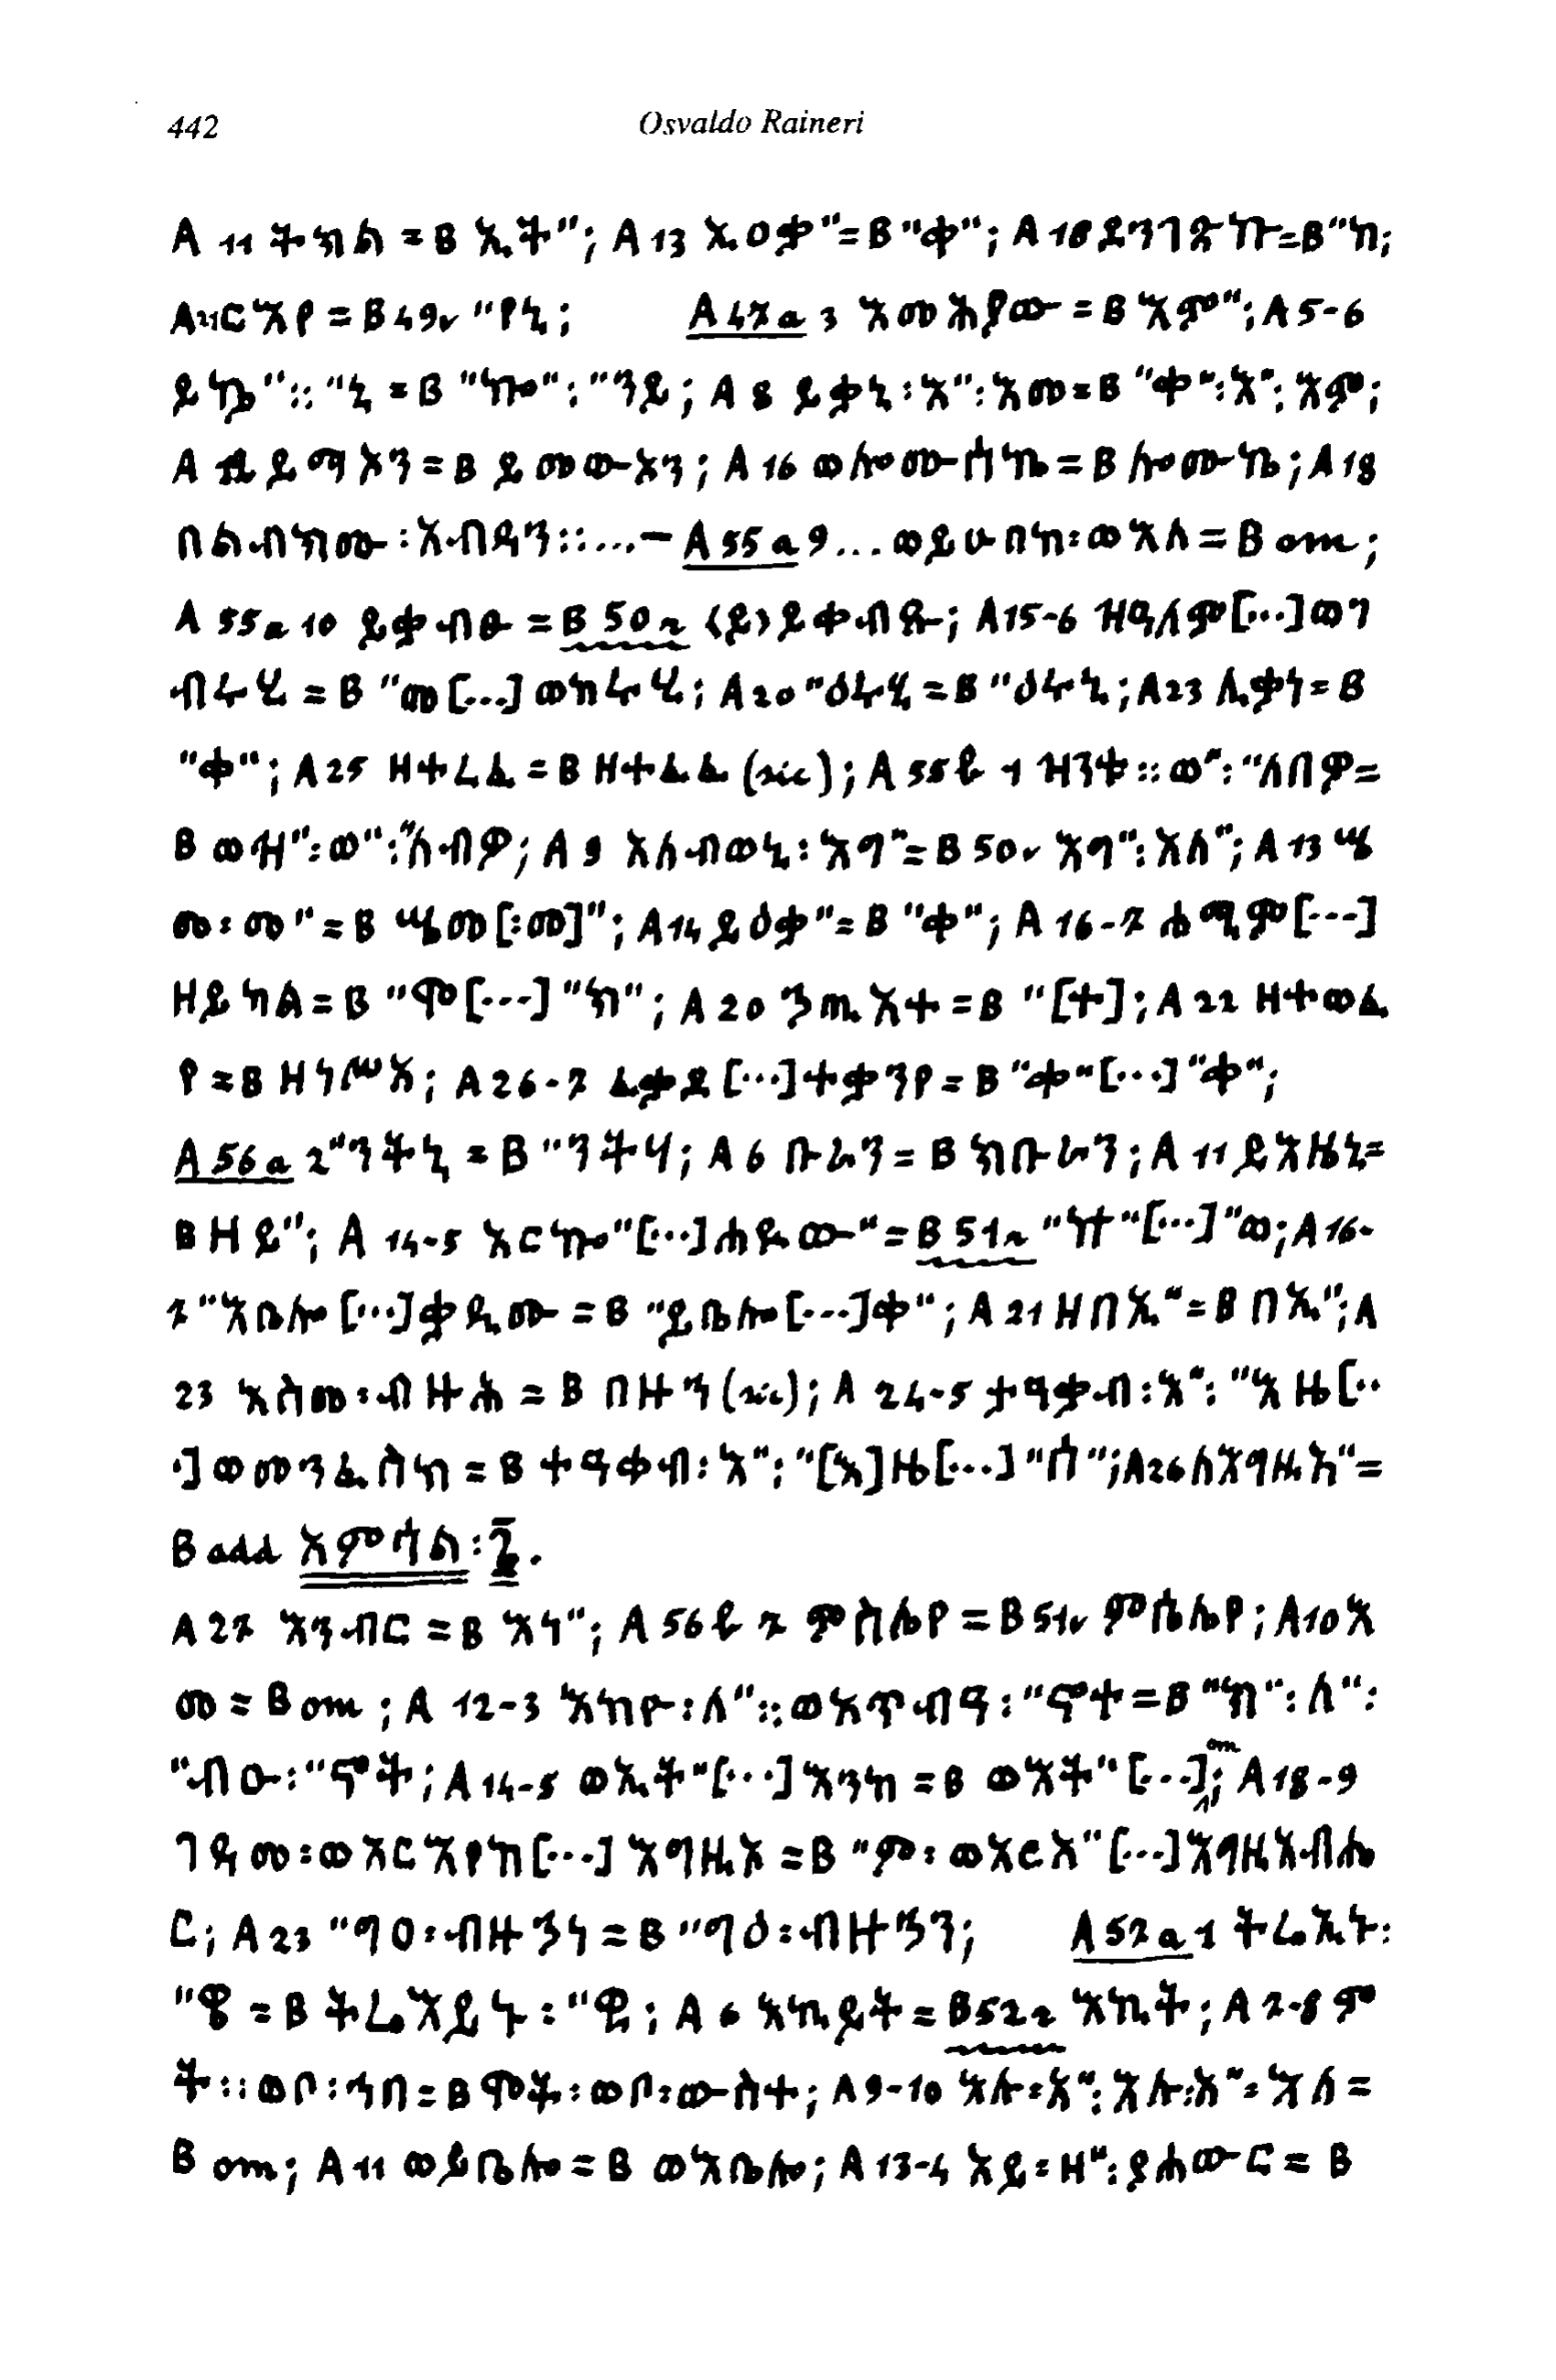 442 Osvaldo Raineri
A 11 ትክል = B ኢት"; A 13 ኢዐቃ"= B "ቀ"; A 18 ይንገድኩ = B "ክ;
= B 49v "የኒ; A 47a 3 = B እም"; A 5-6
"::"ኒ = B "ኰ":"ንይ; A 8 ይቃኒ:እ":እመ = B "ቀ":እ":እም;
A ይማእን = B ይመውእን; A 16 = B ; A 18
በልብክሙ:እብዳን::...– A 55a 9... ወይሁብከ:ወእለ = B om;
A 55a 10 = B 50r ‹ይ›ይቀብፁ; A 15-6 [...] ወገ
ብሩህ = B "መ [...] ወክሩህ; A 20 = B ; A 23 ሊቃነ = B
"ቀ"; A 25 ዘተረፈ = B ዘተፈፈ (sic); A 55b 1 ዘንቱ::ወ":"ለበዎ =
B ወዘ":ወ":"ለብዎ; A 9 እለብወኒ:እግ"= B 50v እግ":እለ"; A 13 ሤ
መ:መ"= B ሤመ[:መ]"; A 14 ይዕቃ"= B "ቀ"; A 16-7 [...]
ዘይክል = B "ሞ [...] "ክ"; A 20 ኃጢአተ = B "[ተ]; A 22 ዘተወፈ
የ = B ዘነሥአ; A 26-7 ፈቃደ [...] ተቃንየ = B "ቀ" [...] "ቀ";
A 56a 2 "ንትኒ = B "ንትሃ; A 6 ቡራን = B ክቡራን; A 11 ይእዜኒ =
B ዘይ"; A 14-5 እርኰ" [...] ሐይው" = B 51r [...] "ወ; A 16-
7 "እቤሎ [...] ቃዲሙ = B "ይቤሎ [...] ቀ"; A 21 ዘበኢ"= B በኢ"; A
23 እስመ:ብዙሕ = B በዙኅ (sic); A 24-5 ተዓቃብ:እ":"እዜ [..
.] ወመንፈስከ = B ተዓቀብ:እ":"[እ]ዜ [...] "ሰ"; A 26 ለእግዚአ"=
B add አምሳል:፪.
A 27 እንብር = B እነ"; A 56b 7 ምስሌየ = B 51v ምሴሌየ; A 10 እ
መ = B om; A 12-3 እከዮ:ለ"::ወአጥብዓ:"ኖተ = B "ክ":ለ":
"ብዑ:"ኖት; A 14-5 ወኢት" [...] እንከ = B ወእት" [...] om; A 18-9
ገዳመ:ወአርአየከ [...] እግዚአ = B "ም:ወአርአ" [...] እግዚአብሔ
ር; A 23 "ግዐ:ብዙኃነ = B "ግዕ:ብዙኃን; A 57a 1 ትሬኢት:
= B ትሬእይት: ; A 6 እኪይት = B 52r እኪት; A 7-8 ም
ት::ወቦ:ኀበ = B ሞት:ወቦ:ውስተ; A 9-10 እሉ:እ":እሉ:እ":እለ =
B om; A 11 ወይቤሎ = B ወእቤሎ; A 13-4 አይ:ዘ":የሐውር = B